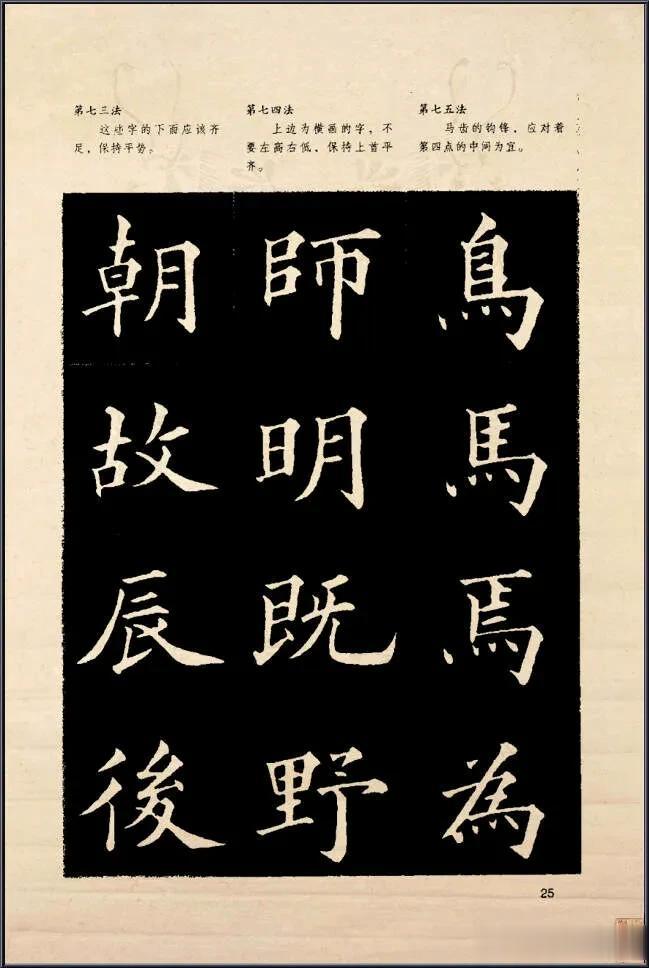 第七三法
这些字的下面应该齐
足，保持平势。
第七四法
上边为横画的字，不
要左高右低，保持上首平
齐。
第七五法
马齿的钩锋，应对着
第四点的中间为宜。
朝師鳥
故明馬
辰既焉
後野為
25